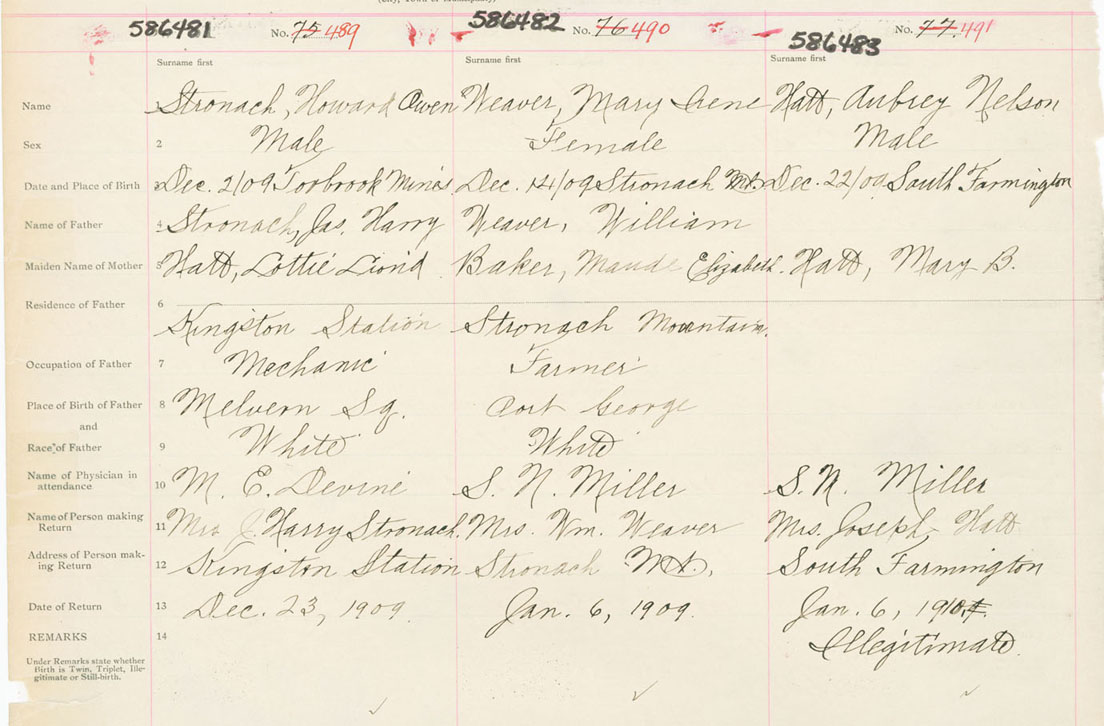 (City, Town or Municipality)
586481 No. 75 489 586482 No. 76 490 586483 No. 77 491
Surname first Surname first Surname first
Name Stronach, Howard Owen Weaver, Mary Irene Hatt, Aubrey Nelson
Sex 2 Male Female Male
Date and Place of Birth 3 Dec. 2/09 Torbrook Mines Dec. 14/09 Stronach Mt. Dec. 22/09 South Farmington
Name of Father 4 Stronach, Jas. Harry Weaver, William
Maiden Name of Mother 5 Hatt, Lottie Baker, Maude Elizabeth. Hatt, Mary B.
Residence of Father 6 Kingston Station Stronach Mountain.
Occupation of Father 7 Mechanic Farmer
Place of Birth of Father 8 Melvern Sq. Port George
and
Race of Father 9 White White
Name of Physician in
attendance 10 M. E. Devine S. N. Miller S. N. Miller
Name of Person making
Return 11 Mrs. J. Harry Stronach. Mrs. Wm. Weaver Mrs. Joseph Hatt
Address of Person mak-
ing Return 12 Kingston Station Stronach Mt. South Farmington
Date of Return 13 Dec. 23, 1909. Jan. 6, 1909. Jan. 6, 1910.
REMARKS 14 Illegitimate.
Under Remarks state whether
Birth is Twin, Triplet, Ille-
gitimate or Still-birth.